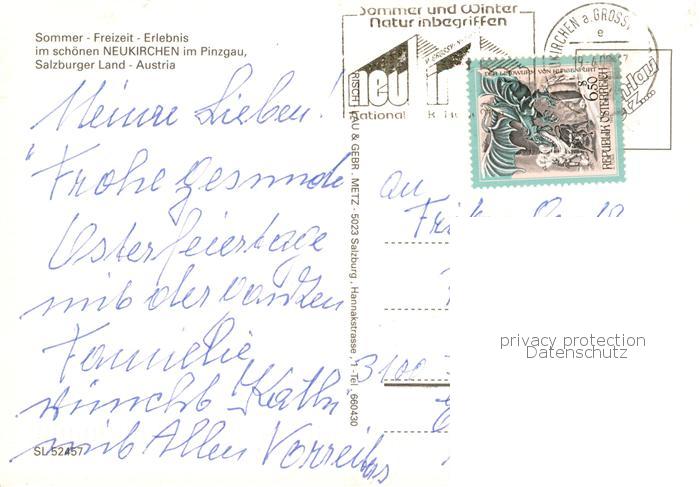 Sommer - Freizeit - Erlebnis
im schönen NEUKIRCHEN im Pinzgau,
Salzburger Land - Austria
Meine Lieben!
Frohe gesunde
Osterfeiertage
mit der ganzen
Familie
wünscht Kathi
mit Allen
SL 52457
RISCH-LAU & GEBR. METZ - 5023 Salzburg, Hannakstrasse 1 - Tel. 660430
Sommer und Winter
Natur inbegriffen
neu
National
KIRCHEN a. GROSS
e
DER LINDWURM VON KLAGENFURT
S 6,50
REPUBLIK ÖSTERREICH
an
3100
privacy protection
Datenschutz